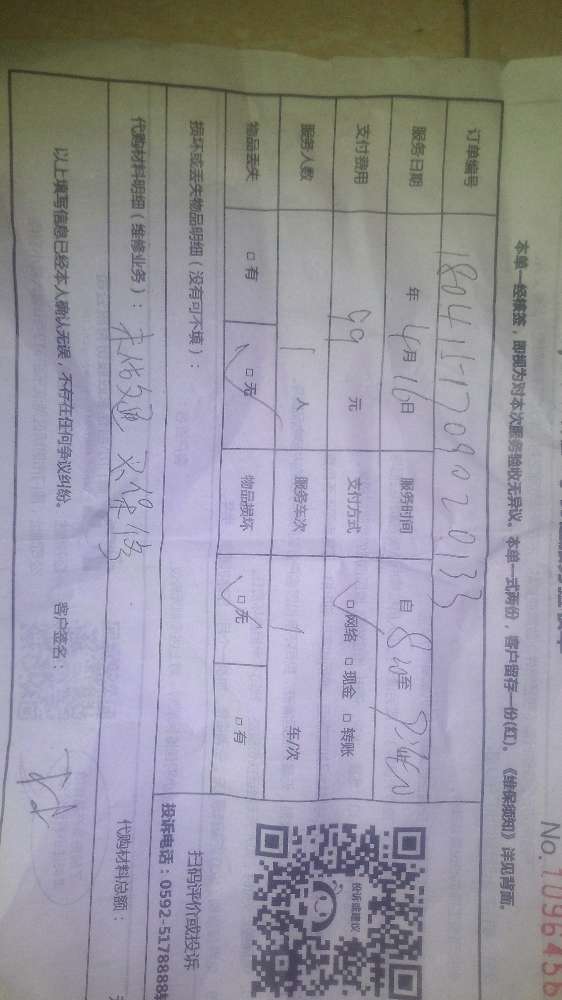 No.1096456
本单一经捎签，即视为对本次服务验收无异议。本单一式两份，客户留存一份(红)。《维保须知》详见背面。
订单编号 1804151709020133
服务日期 年 4月16日 服务时间 自 8 至
支付费用 99 元 支付方式 □网络 □现金 □转账
服务人数 1 人 服务车次 1 车/次
物品丢失 □有 □无 物品损坏 □无 □有
损坏或丢失物品明细（没有可不填）：
代购材料明细（维修业务）： 不保修
代购材料总额：
以上填写信息已经本人确认无误，不存在任何争议纠纷。 客户签名：
投诉或建议
扫码评价或投诉
投诉电话：0592-5178888